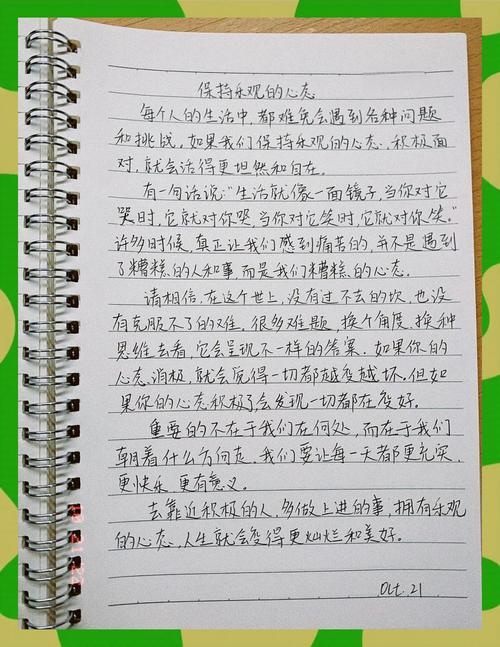 保持乐观的心态
每个人的生活中,都难免会遇到各种问题
和挑战。如果我们保持乐观的心态,积极面
对,就会活得更坦然和自在。
有一句话说:“生活就像一面镜子,当你对它
哭时,它就对你哭,当你对它笑时,它就对你笑。”
许多时候,真正让我们感到痛苦的,并不是遇到
了糟糕的人和事,而是我们糟糕的心态。
请相信,在这个世上,没有过不去的坎,也没
有克服不了的难。很多难题,换个角度,换种
思维去看,它会呈现不一样的答案。如果你的
心态消极,就会觉得一切都越变越坏。但如
果你的心态积极了会发现一切都在变好。
重要的不在于我们在何处,而在于我们
朝着什么方向走。我们要让每一天都更充实,
更快乐,更有意义。
去靠近积极的人,多做上进的事,拥有乐观
的心态,人生就会变得更灿烂和美好。
Oct. 21